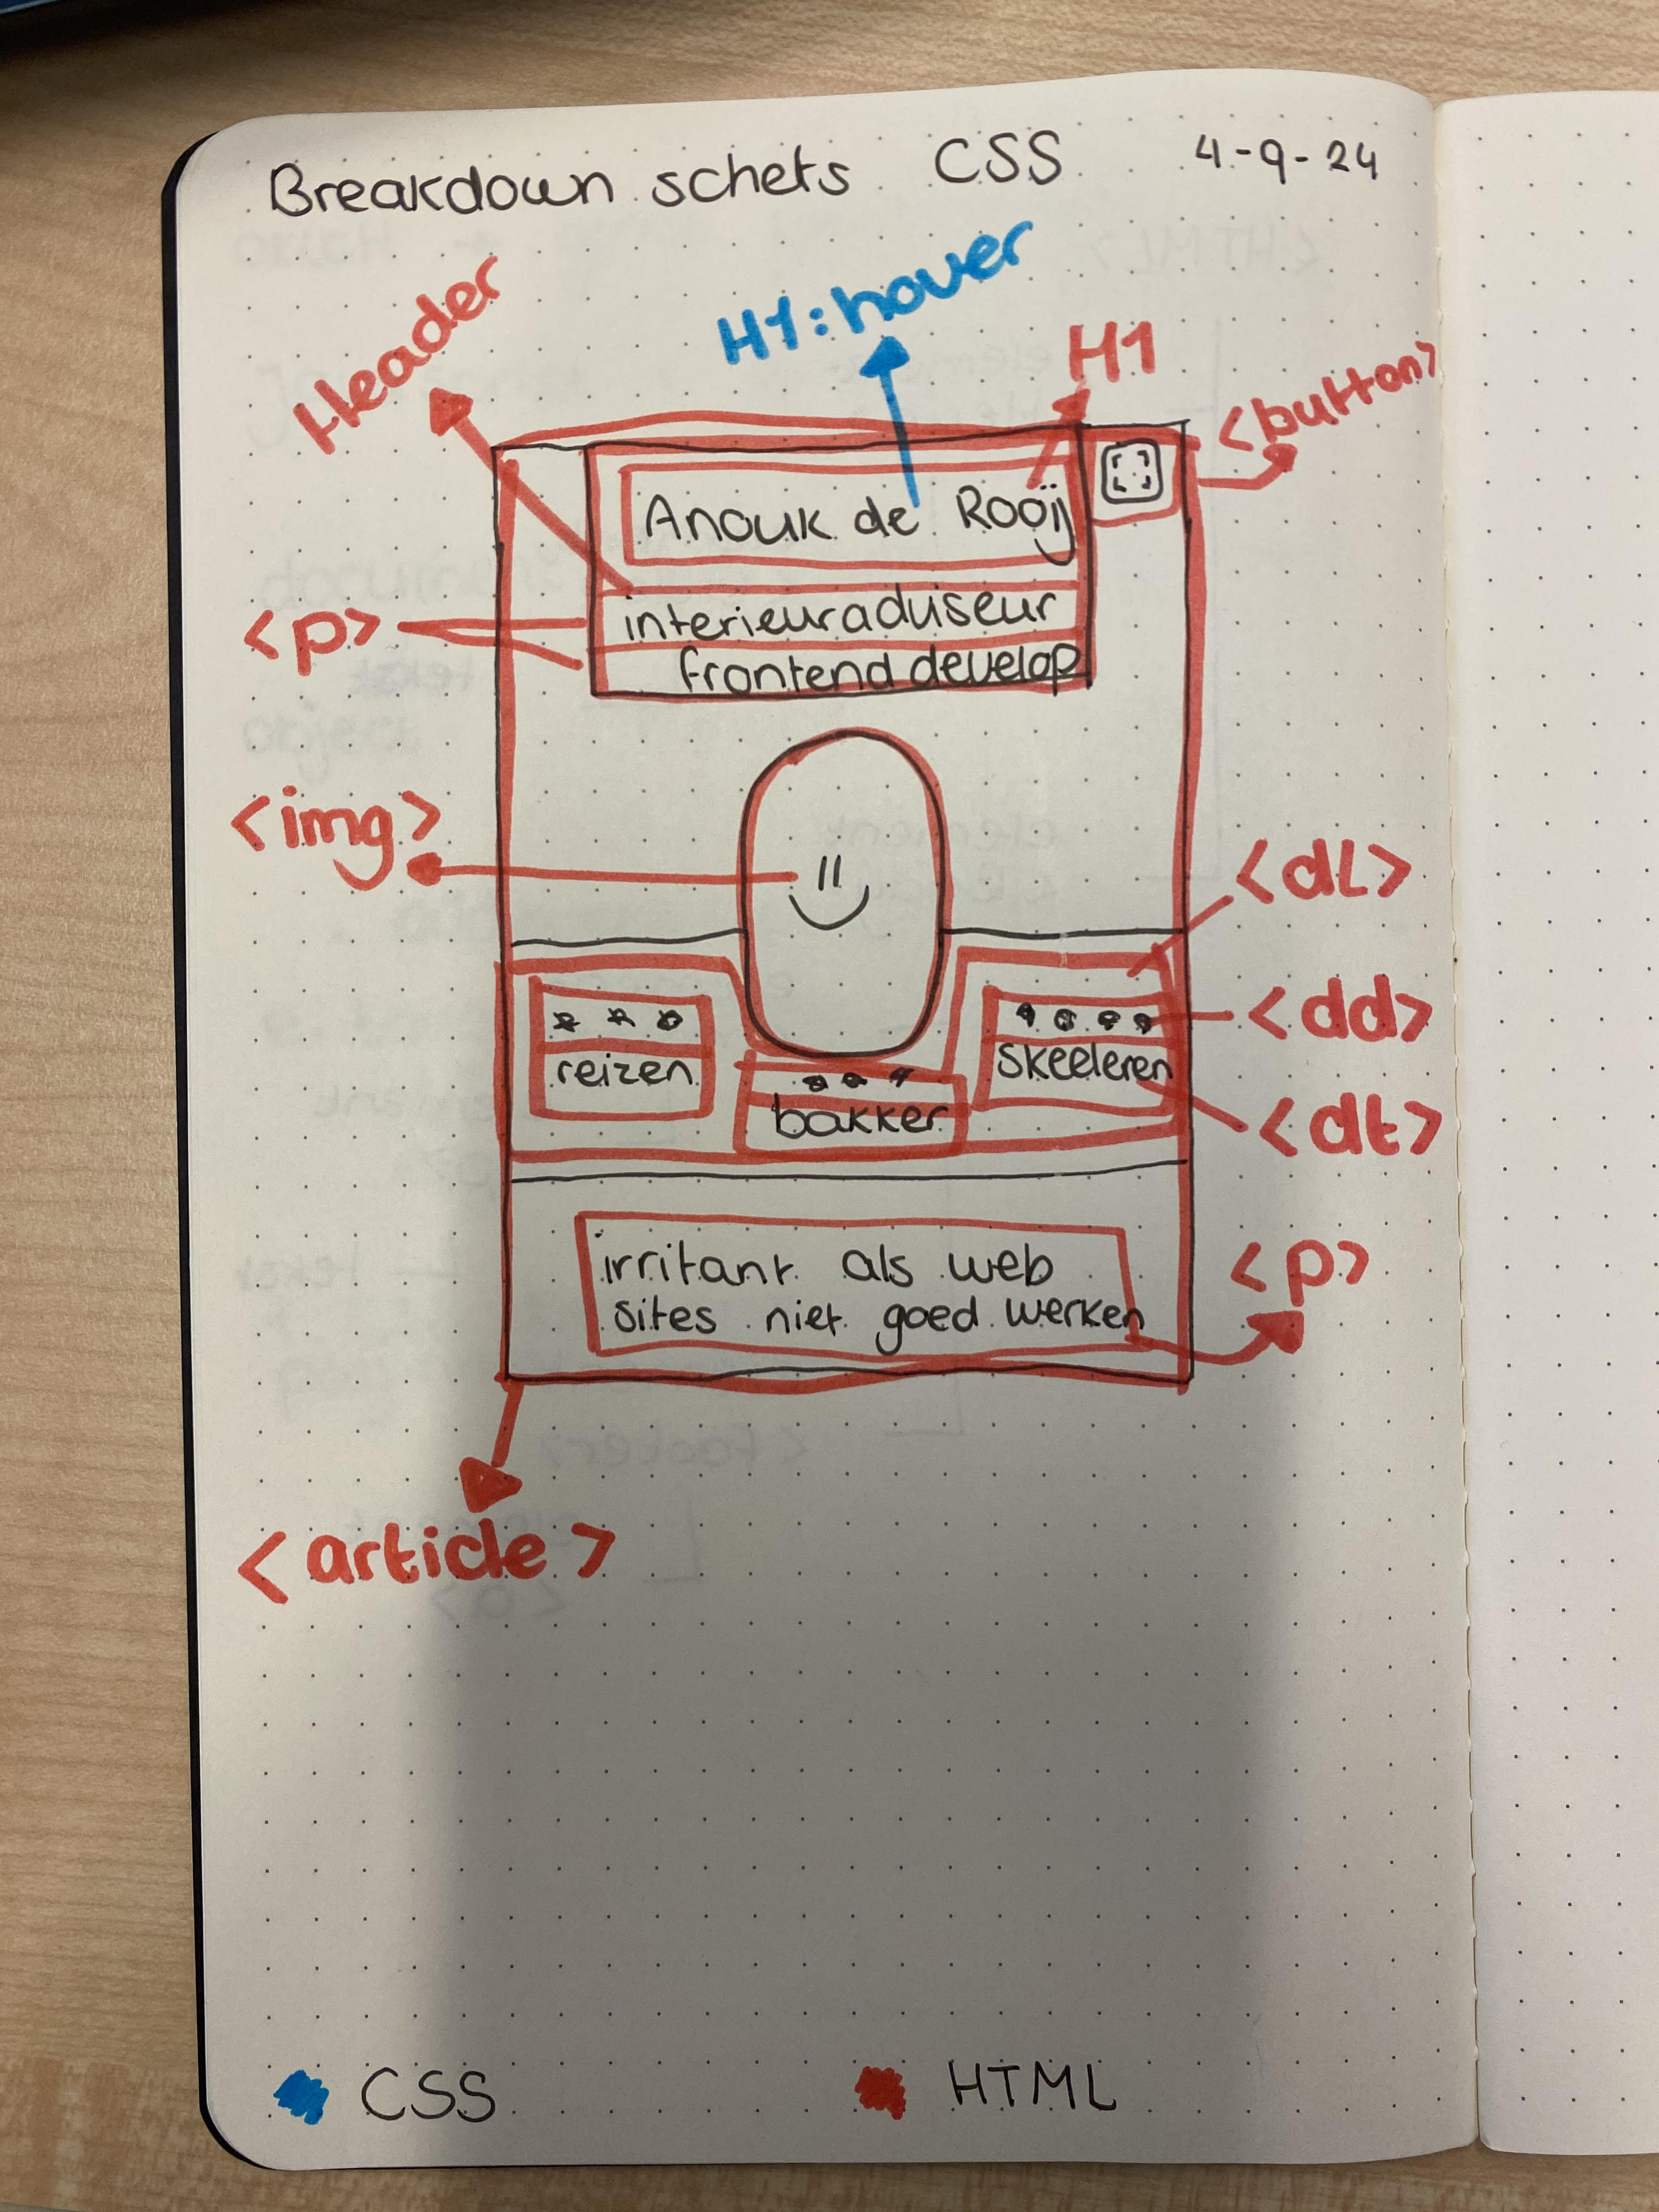 Breakdown schets CSS 4-9-24
Header
H1:hover
H1
<button>
Anouk de Rooij
<p>
interieuraduiseur
frontend develop
<img>
<dL>
<dd>
reizen
skeeleren
bakker
<dt>
irritant als web
sites niet goed werken
<p>
<article>
CSS HTML